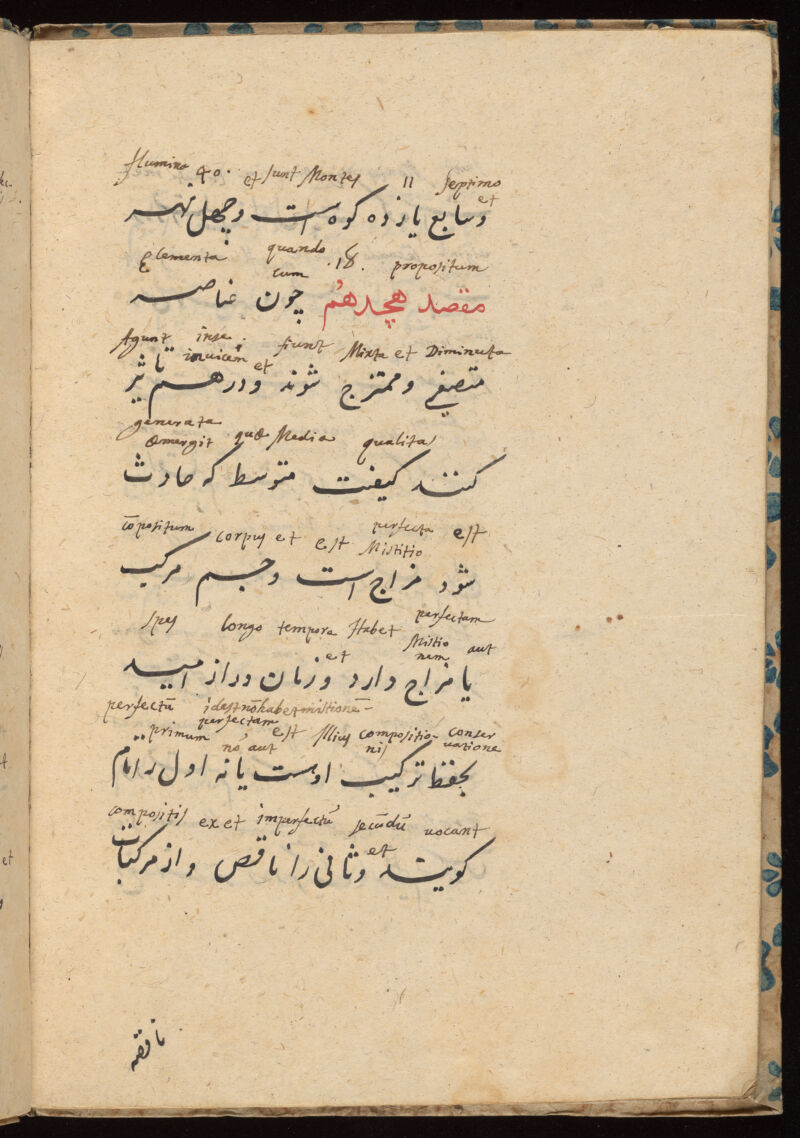 flumina 40. et sunt Montes 11 septimo
et
وسابع يازده كوه است وچهل نهر
elementa quando .18. propositum
cum
مقصد هجدهم چون عناصر
Agunt in se . fiunt Mixta et Diminuta
invicem et
متصغر وممتزج شوند ودرهم تأثير
generata
emergit quæ Media qualitas
كنند كيفيت متوسط كه حادث
cõpositum corpus et est perfecta est
Mistitio
شود مزاج است وجسم مركب
spes longo tempora Habet perfectam
et Mistio nem aut
يا مزاج دارد وزمان دراز اميد
perfectũ id est nõ habet mistionẽ
perfectam
primum nõ aut est Illius compositio- conser
nis vatione
بحفظ تركيب اوست يا نه اول را تام
compositis ex et imperfectũ secũdũ vocant
et
كويند وثانى را ناقص واز مركبات
ناقصه